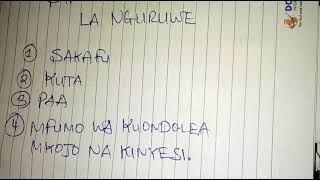 LA NGURUWE
① SAKAFU
② KUTA
③ PAA
④ MFUMO WA KUONDOLEA
MKOJO NA KINYESI.